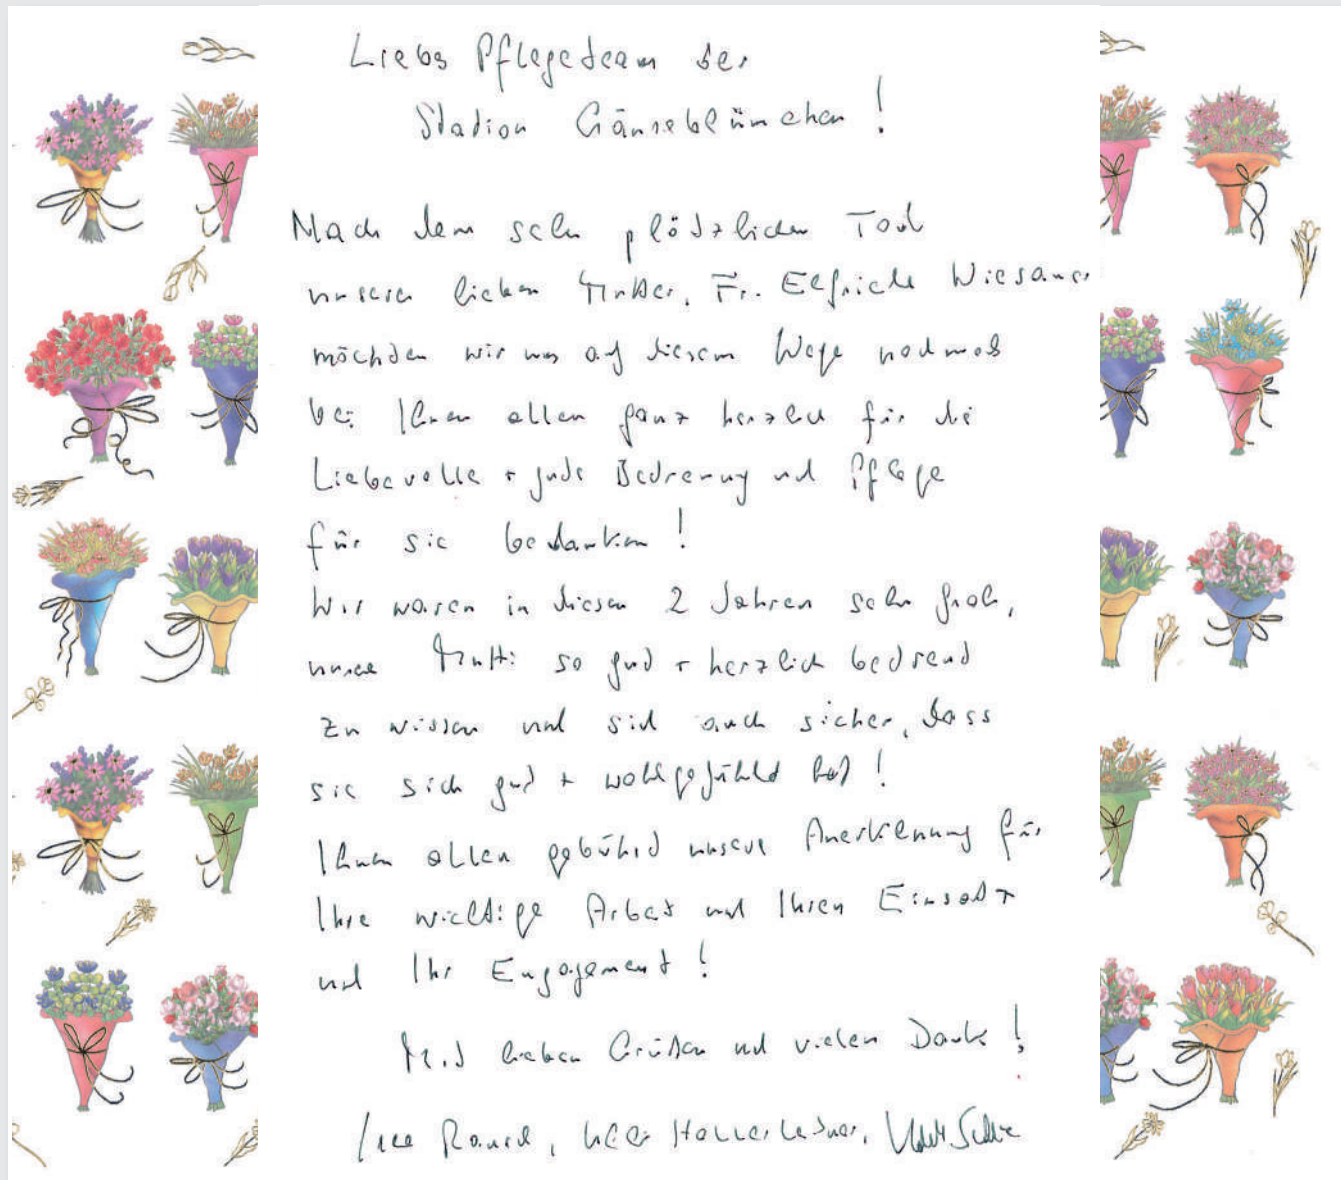 Liebes Pflegeteam der
Station Gänseblümchen!
Nach dem sehr plötzlichen Tod
unserer lieben Mutter, Fr. Elfriede Wiesauer
möchten wir uns auf diesem Wege nochmals
bei Ihnen allen ganz herzlich für die
Liebevolle + gute Betreuung und Pflege
für sie bedanken!
Wir waren in diesen 2 Jahren sehr froh,
unsere Mutti so gut + herzlich betreut
zu wissen und sind auch sicher, dass
sie sich gut + wohlgefühlt hat!
Ihnen allen gebührt unsere Anerkennung für
Ihre wichtige Arbeit und Ihren Einsatz
und Ihr Engagement!
Mit lieben Grüßen und vielen Dank!